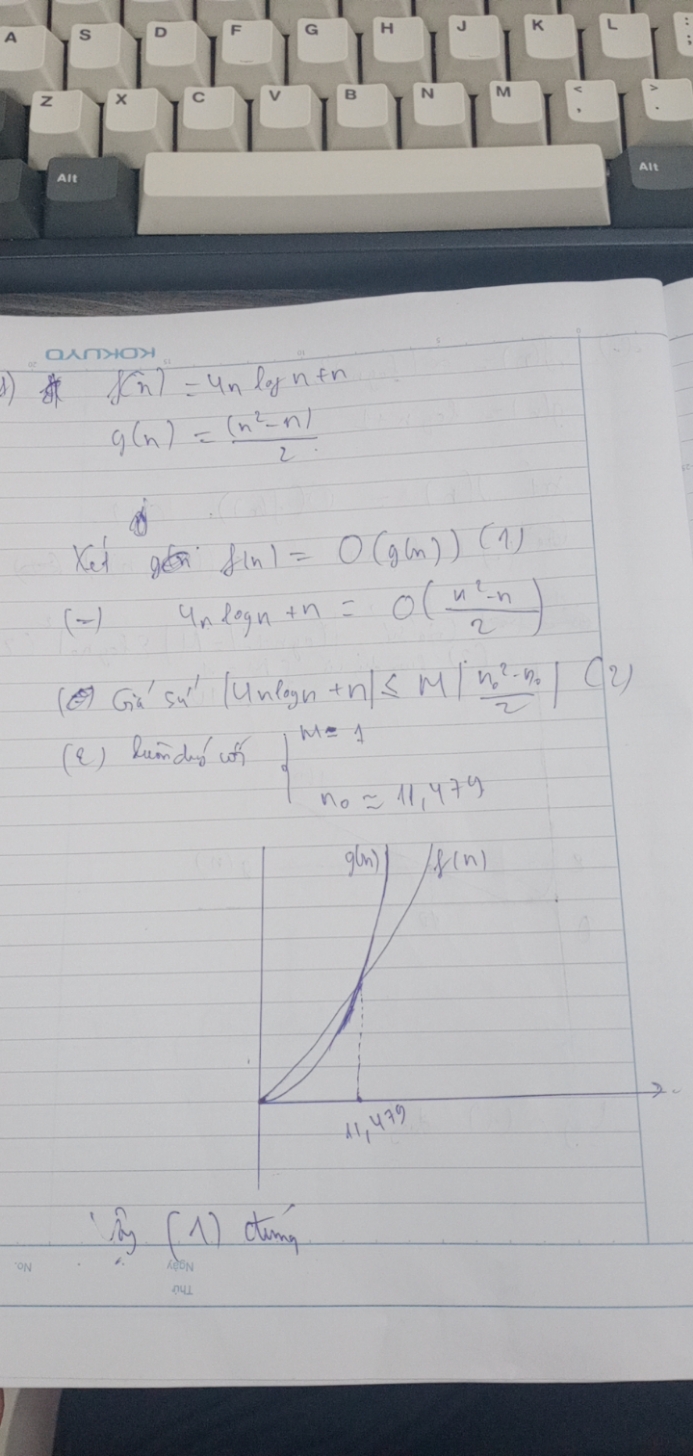 A S D F G H J K L : ;
Z X C V B N M < , > .
Alt Alt
KOKUYO
1) f(n) = 4n log n + n
g(n) = (n² - n) / 2
Xét f(n) = O(g(n)) (1)
(-) 4n log n + n = O((n² - n) / 2)
Giả sử |4n log n + n| ≤ M |(n₀² - n₀) / 2| (2)
(2) luôn đúng với { M = 1
n₀ ≈ 11,479
g(n) f(n)
11,479
Vậy (1) đúng
No. Ngày
Thứ